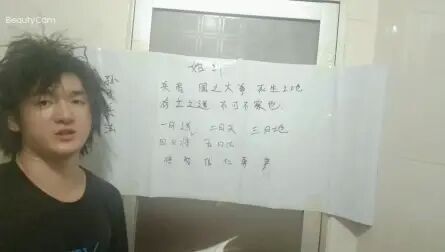 BeautyCam
始计
孙子兵法
兵者 国之大事 死生之地
存亡之道 不可不察也.
一曰道, 二曰天 三曰地
四曰将 五曰法
智 信 仁 勇 严